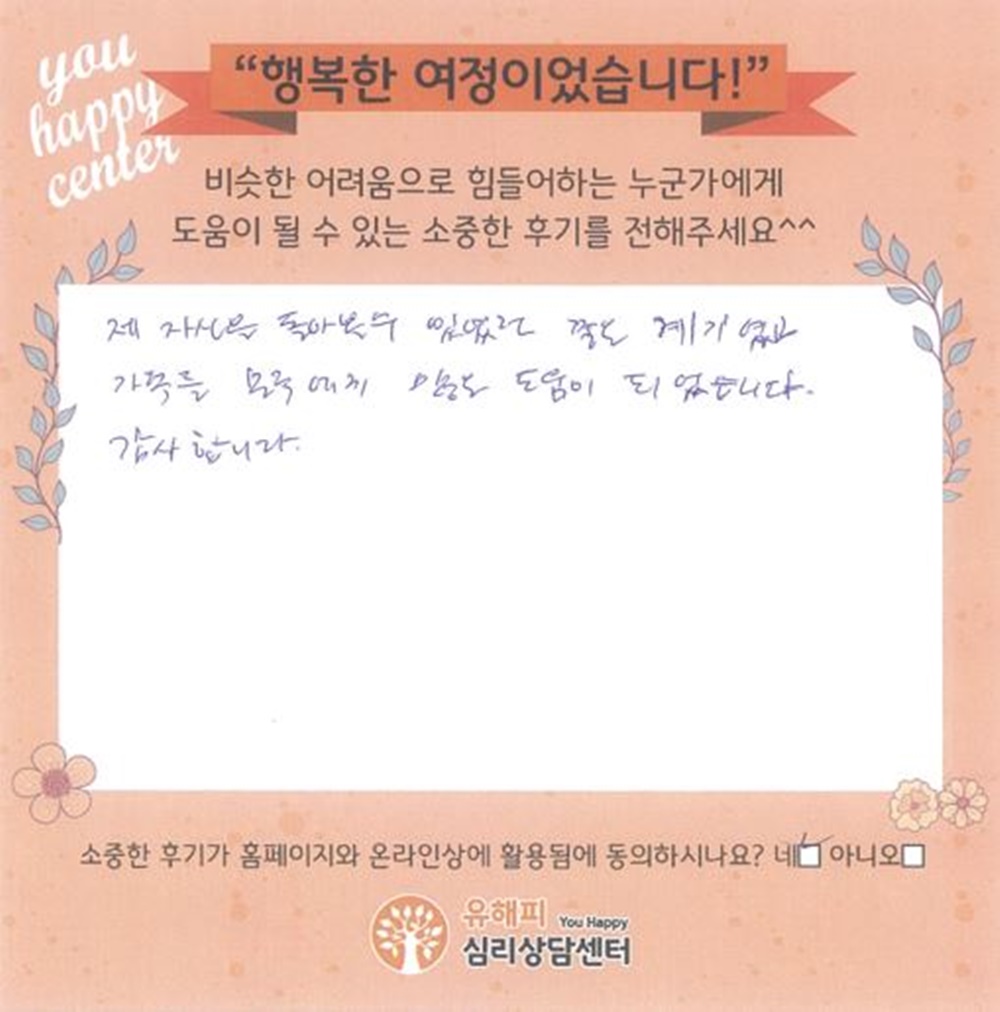 you
happy
center
“행복한 여정이었습니다!”
비슷한 어려움으로 힘들어하는 누군가에게
도움이 될 수 있는 소중한 후기를 전해주세요^^
제 자신을 돌아볼수 있었던 좋은 계기였고
가족들 모두에게 도움이 되었습니다.
감사합니다.
소중한 후기가 홈페이지와 온라인상에 활용됨에 동의하시나요? 네 아니오
유해피 You Happy
심리상담센터